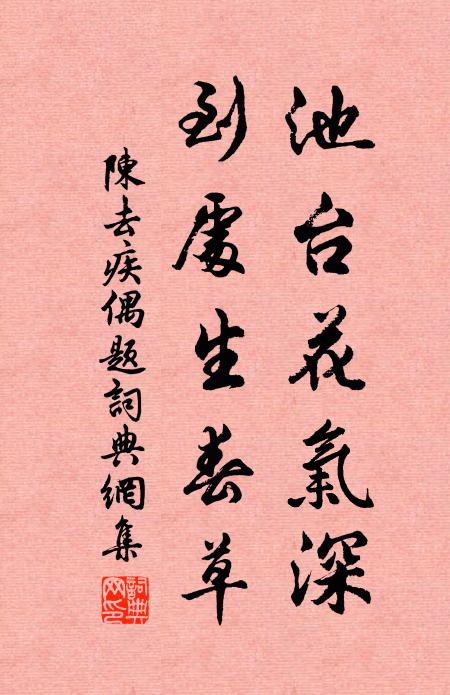 池台花氣深
到處生春草
陳去疾偶題詞典網集
詞典網印